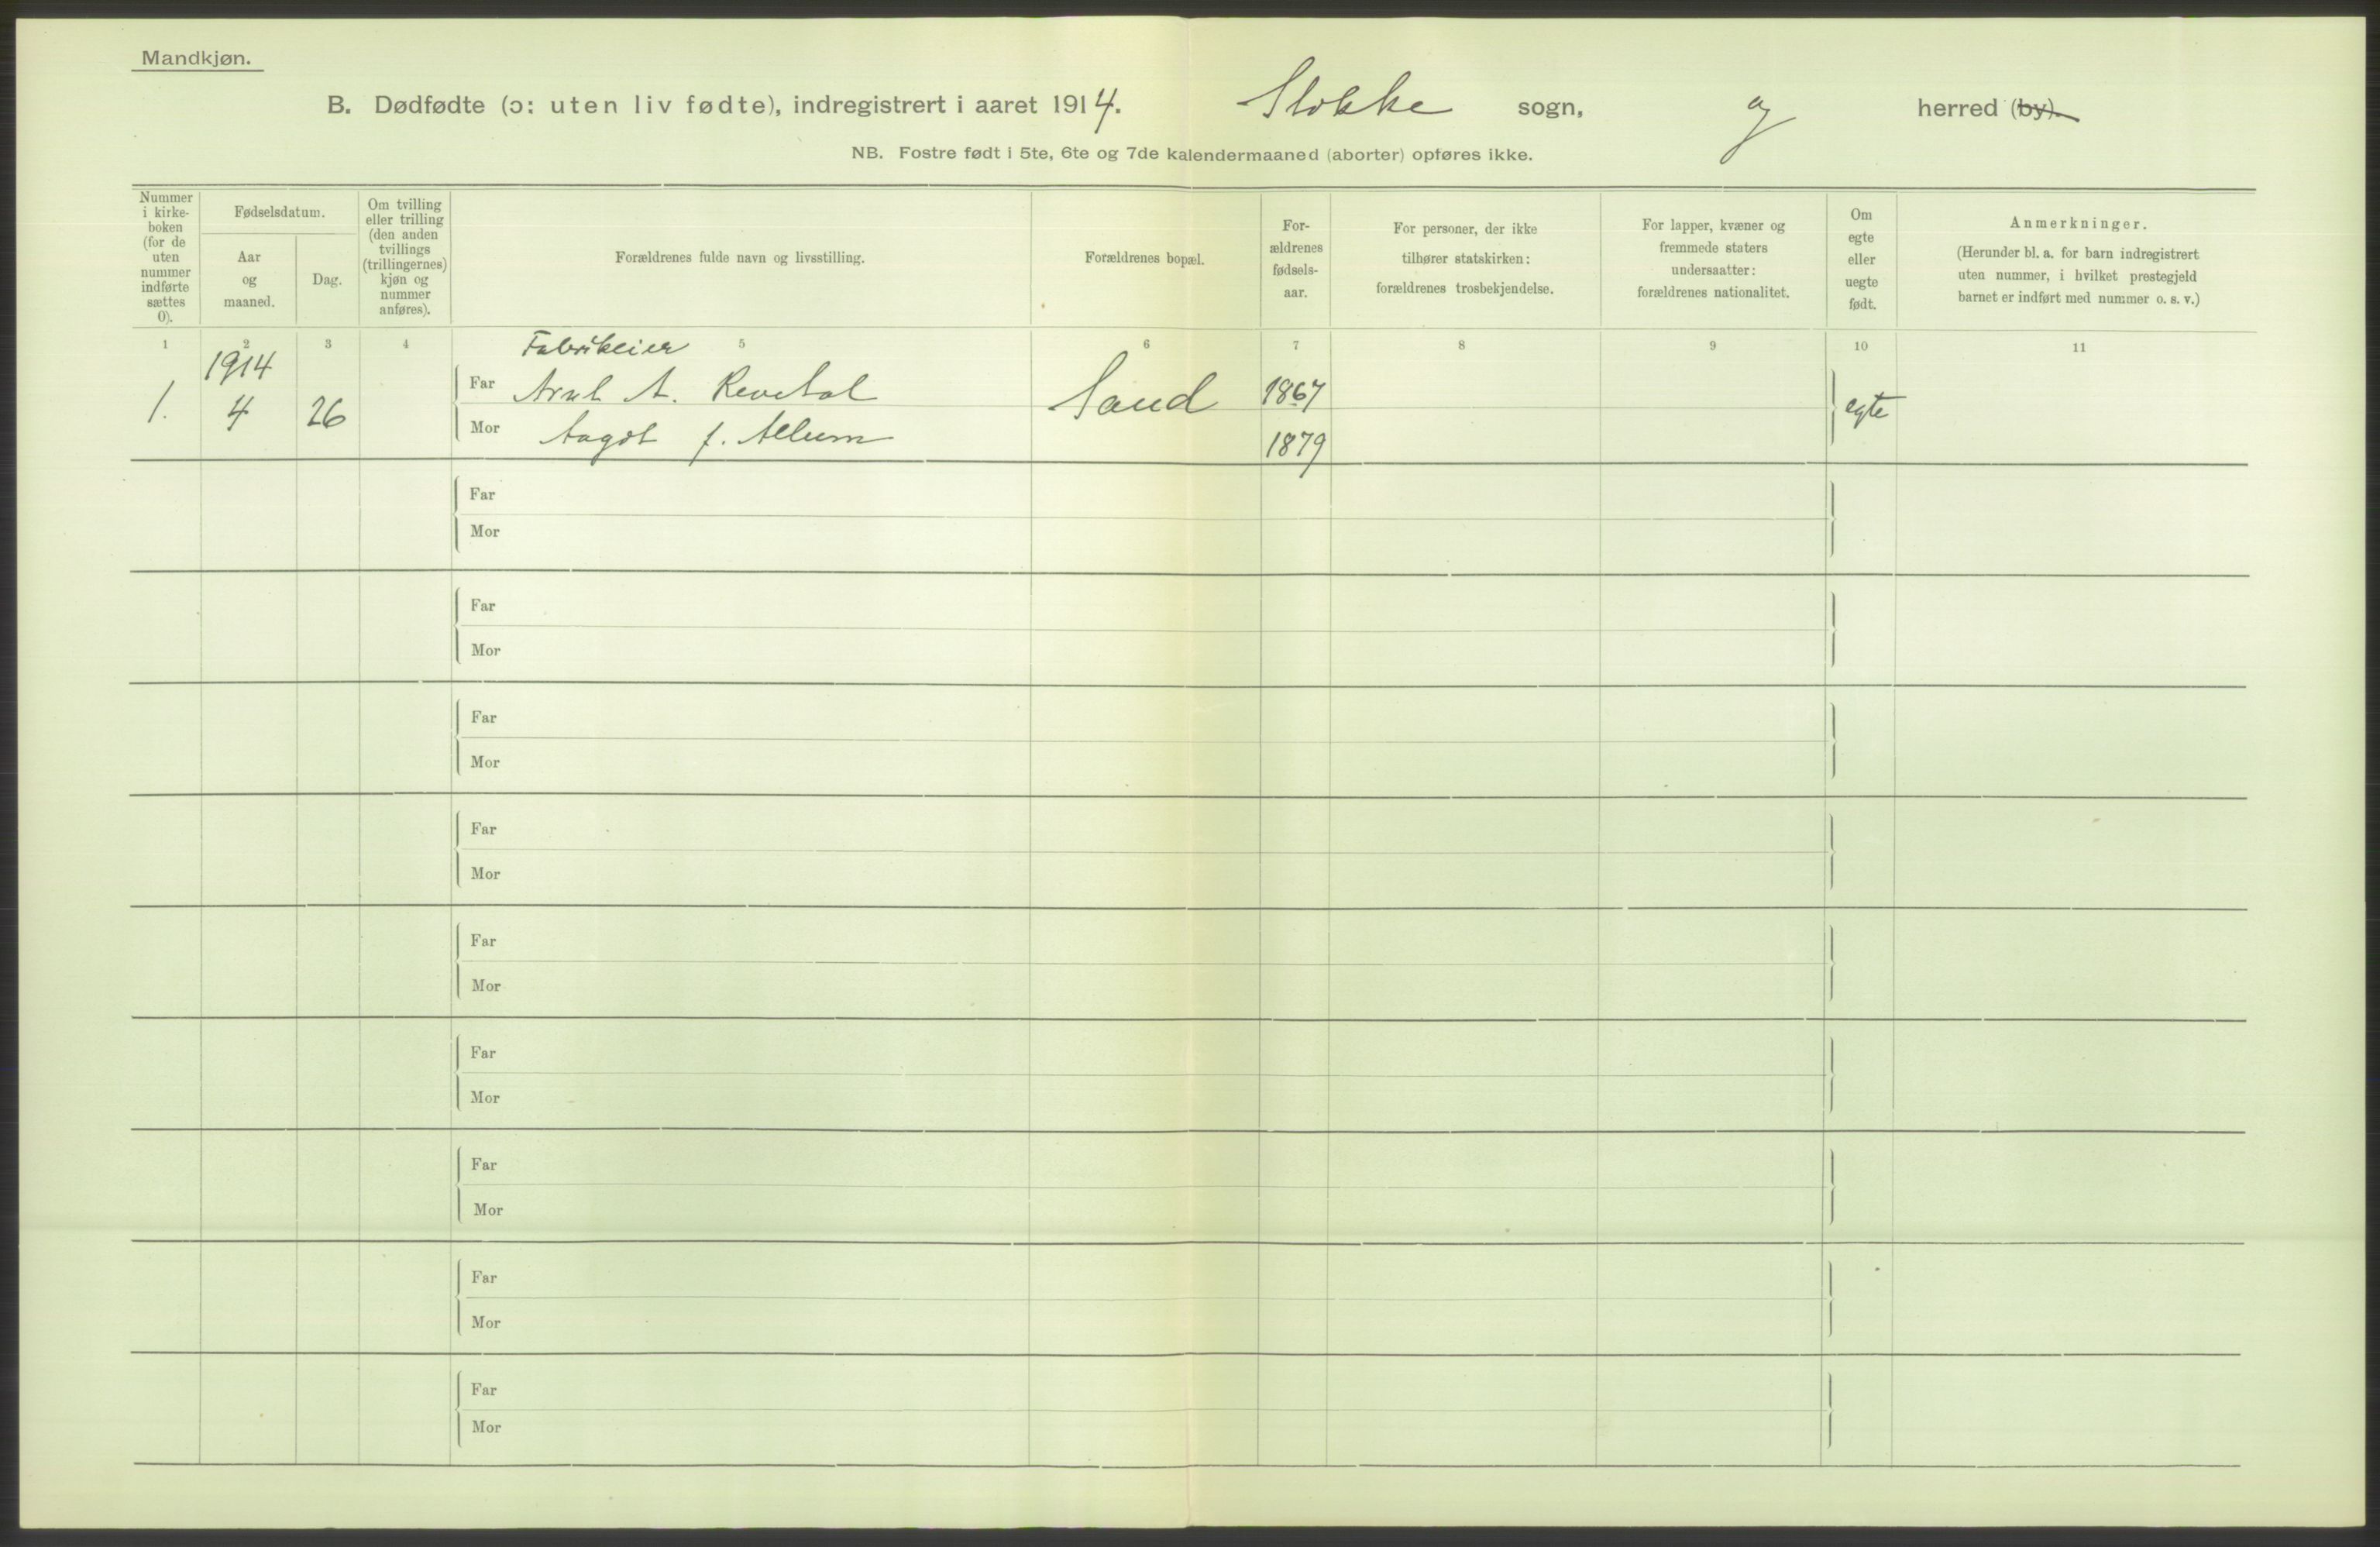 Mandkjøn.
B. Dødfødte (ɔ: uten liv fødte), indregistrert i aaret 1914. Stokke sogn, og herred (by).
NB. Fostre født i 5te, 6te og 7de kalendermaaned (aborter) opføres ikke.
Nummer
i kirke-
boken
(for de
uten
nummer
indførte
sættes
0).
Fødselsdatum.
Aar
og
maaned.
Dag.
Om tvilling
eller trilling
(den anden
tvillings
(trillingernes)
kjøn og
nummer
anføres).
Forældrenes fulde navn og livsstilling.
Forældrenes bopæl.
For-
ældrenes
fødsels-
aar.
For personer, der ikke
tilhører statskirken:
forældrenes trosbekjendelse.
For lapper, kvæner og
fremmede staters
undersaatter:
forældrenes nationalitet.
Om
egte
eller
uegte
født.
Anmerkninger.
(Herunder bl. a. for barn indregistrert
uten nummer, i hvilket prestegjeld
barnet er indført med nummer o. s. v.)
1 2 3 4 5 6 7 8 9 10 11
1914
Fabrikeier
1. 4 26
Far Arnt A. Revetal Sand 1867 egte
Mor Aagot f. Allum 1879
Far
Mor
Far
Mor
Far
Mor
Far
Mor
Far
Mor
Far
Mor
Far
Mor
Far
Mor
Far
Mor